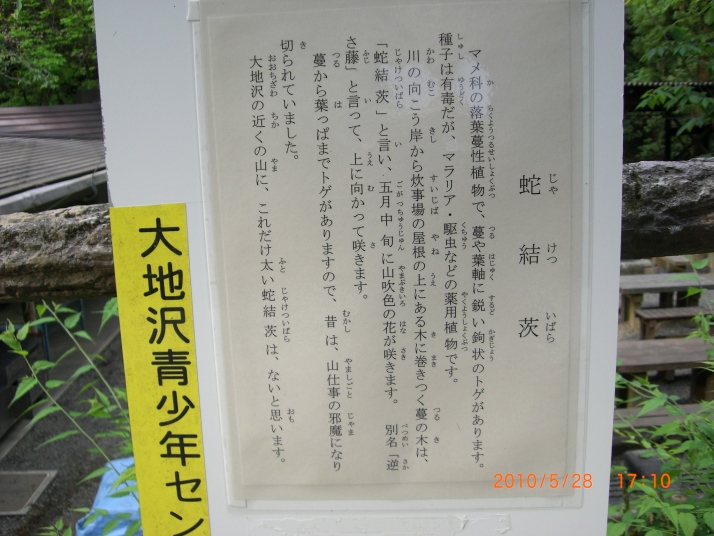 蛇結茨
じゃけついばら
マメ科の落葉蔓性植物で、蔓や葉軸に鋭い鉤状のトゲがあります。
種子は有毒だが、マラリア・駆虫などの薬用植物です。
川の向こう岸から炊事場の屋根の上にある木に巻きつく蔓の木は、
「蛇結茨」と言い、五月中旬に山吹色の花が咲きます。 別名「逆
さ藤」と言って、上に向かって咲きます。
蔓から葉っぱまでトゲがありますので、昔は、山仕事の邪魔になり
切られていました。
大地沢の近くの山に、これだけ太い蛇結茨は、ないと思います。
大地沢青少年セン
2010/5/28 17:10